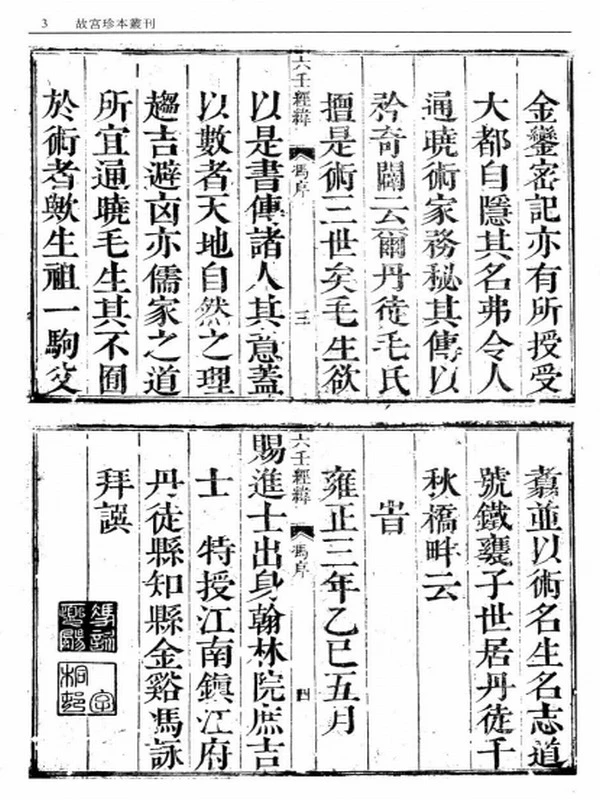 3 故宮珍本叢刊
金鑾密記亦有所授受
大都自隱其名弗令人
通曉術家務秘其傳以
矜奇闘云爾丹徒毛氏
擅是術三世矣毛生欲
六壬經緯 馮序 三
以是書傳諸人其意蓋
以數者天地自然之理
趨吉避凶亦儒家之道
所宜通曉毛生其不囿
於術者歟生祖一駒父
藄並以術名生名志道
號鐵蓑子世居丹徒千
秋橋畔云
旹
雍正三年乙巳五月
六壬經緯 馮序 四
賜進士出身翰林院庶吉
士 特授江南鎮江府
丹徒縣知縣金谿馮詠
拜譔
馮詠
字
桐村